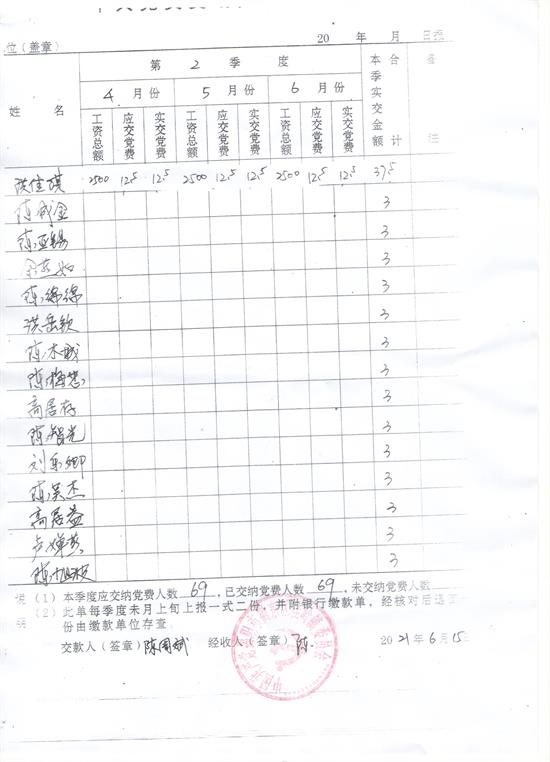 位（盖章） 20 年 月 日
姓 名 第 2 季 度 本季实交金额 合计 备注
4 月份 5 月份 6 月份
工资总额 应交党费 实交党费 工资总额 应交党费 实交党费 工资总额 应交党费 实交党费
洪佳琪 2500 12.5 12.5 2500 12.5 12.5 2500 12.5 12.5 37.5
陈成金 3
陈亚锡 3
3
陈绵绵 3
洪岳钦 3
陈木城 3
陈梅 3
高居存 3
陈智光 3
刘 卿 3
陈昊杰 3
高居益 3
卢婵 3
陈 3
说明 （1）本季度应交纳党费人数 69，已交纳党费人数 69，未交纳党费人数
（2）此单每季度未月上旬上报一式二份，并附银行缴款单，经核对后退
份由缴款单位存查。
交款人（签章）陈国斌 经收人（签章）陈 2021年6月15